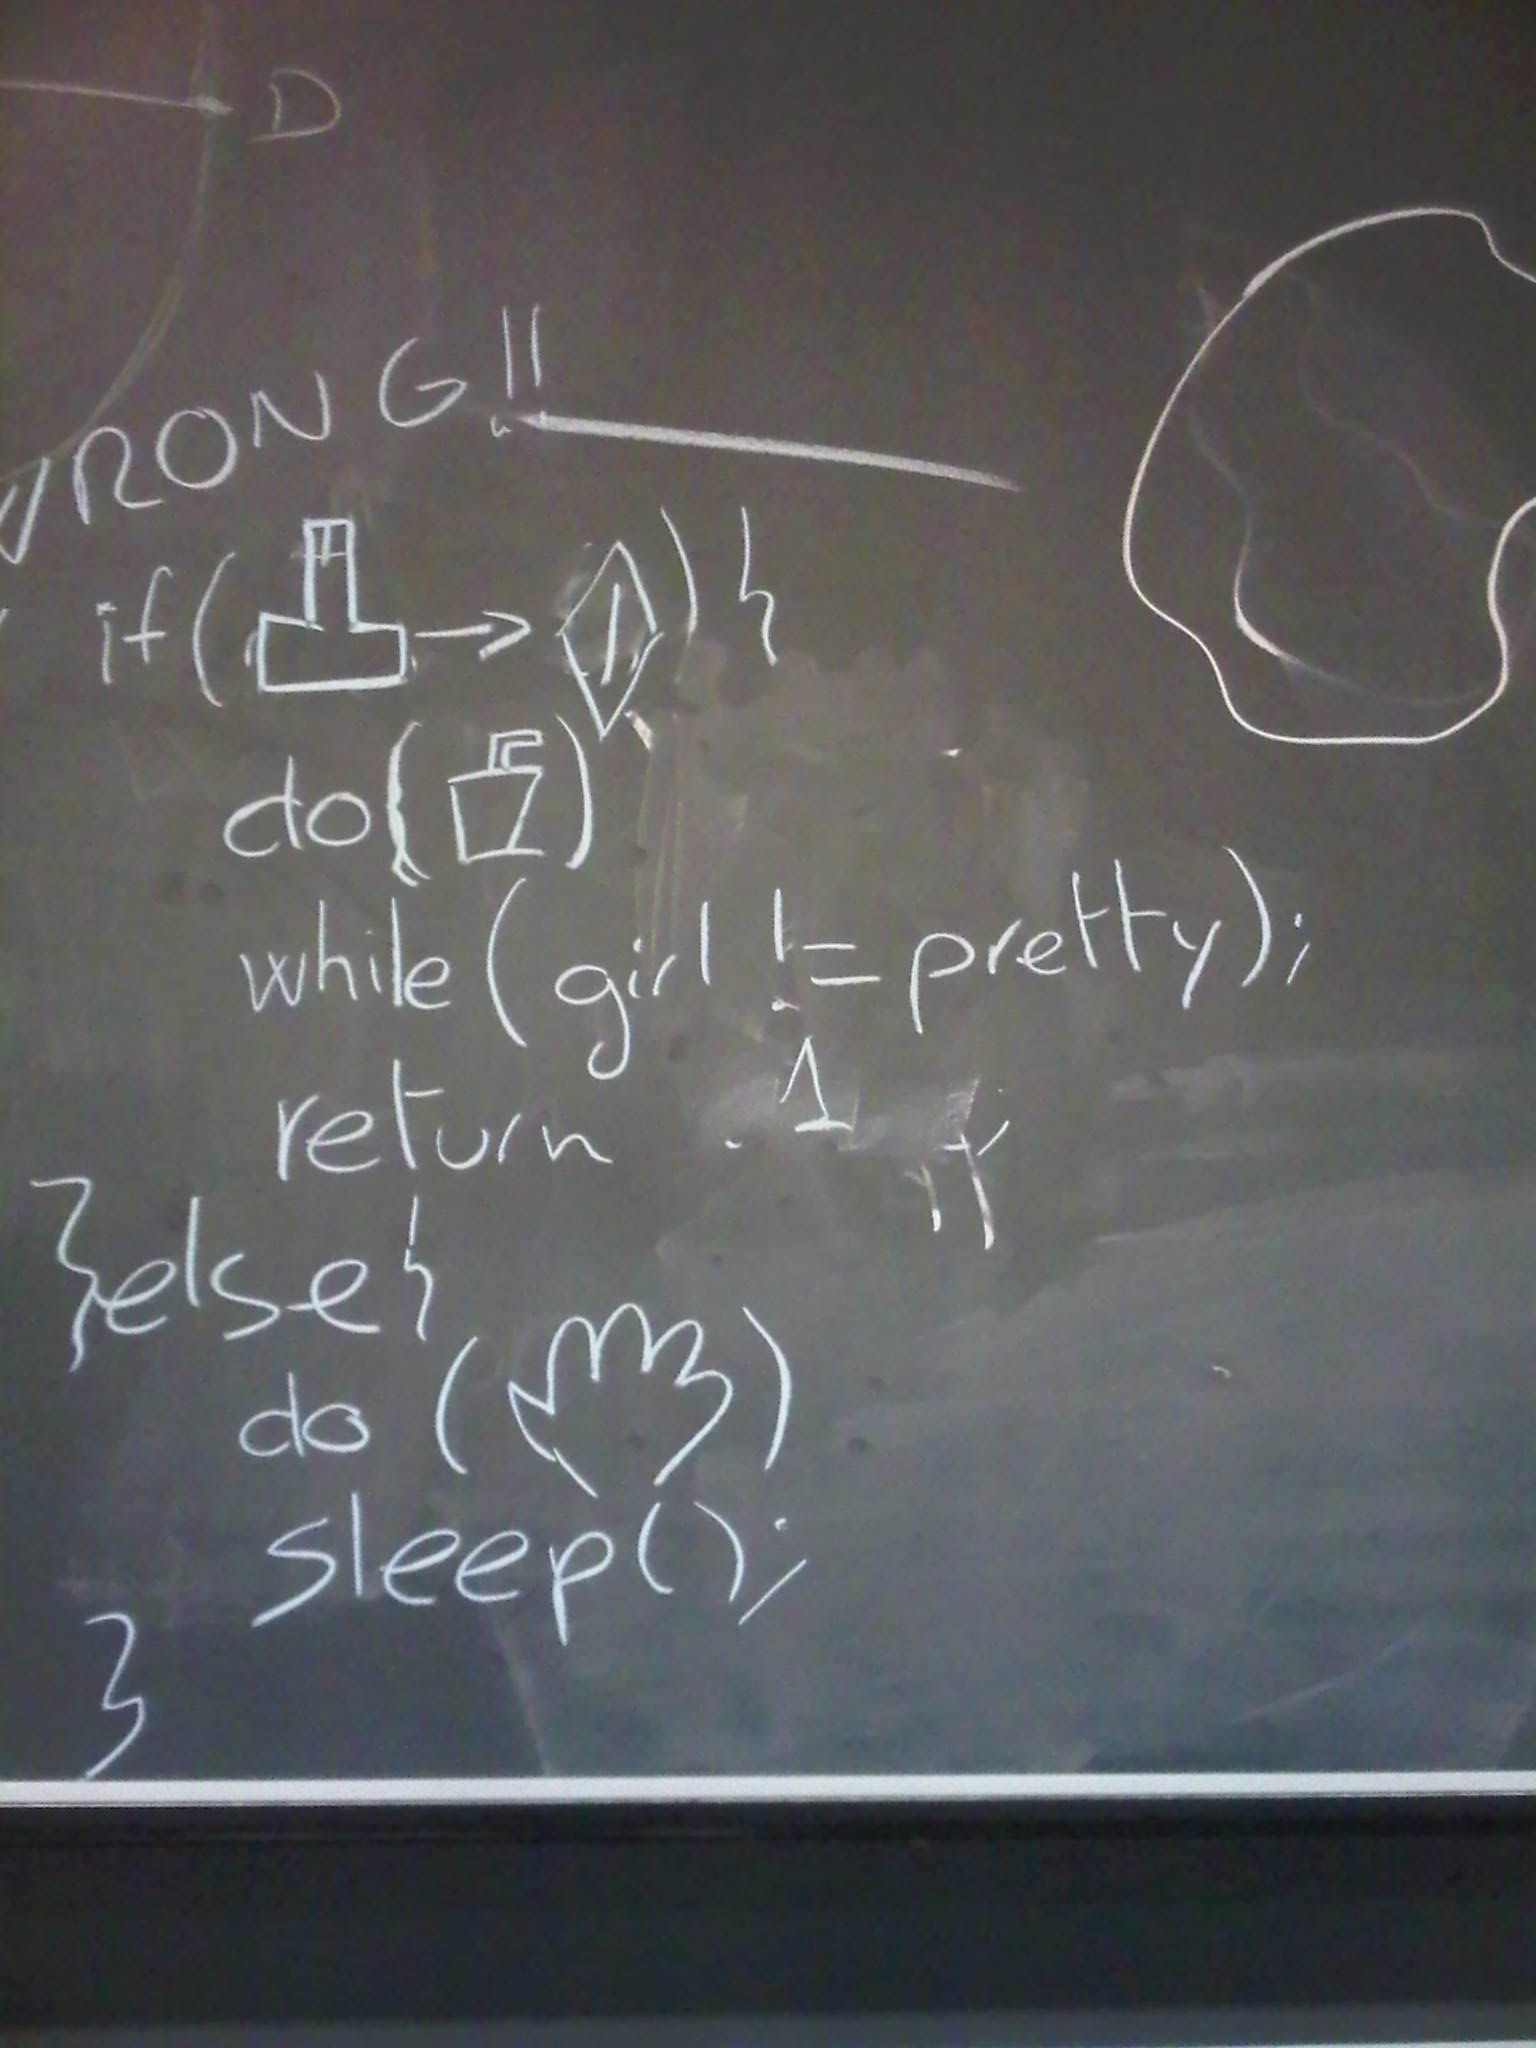 D
WRONG!!
if( → ){
do{( )
while(girl != pretty);
return 1;
}else{
do ( )
sleep();
}